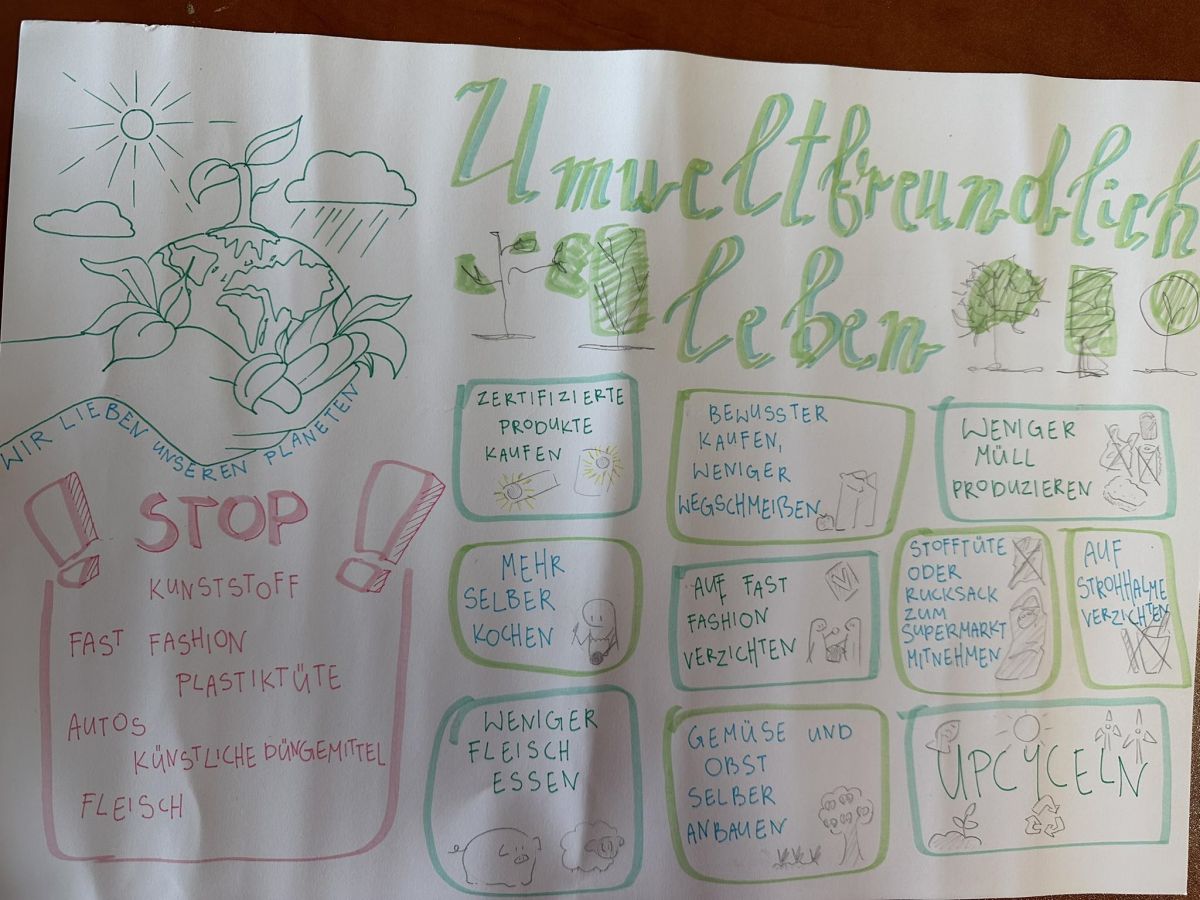 Umweltfreundlich
leben
WIR LIEBEN UNSEREN PLANETEN
STOP
KUNSTSTOFF
FAST FASHION
PLASTIKTÜTE
AUTOS
KÜNSTLICHE DÜNGEMITTEL
FLEISCH
ZERTIFIZIERTE
PRODUKTE
KAUFEN
BEWUSSTER
KAUFEN,
WENIGER
WEGSCHMEIßEN
WENIGER
MÜLL
PRODUZIEREN
MEHR
SELBER
KOCHEN
AUF FAST
FASHION
VERZICHTEN
STOFFTÜTE
ODER
RUCKSACK
ZUM
SUPERMARKT
MITNEHMEN
AUF
STROHHALME
VERZICHTEN
WENIGER
FLEISCH
ESSEN
GEMÜSE UND
OBST
SELBER
ANBAUEN
UPCYCELN